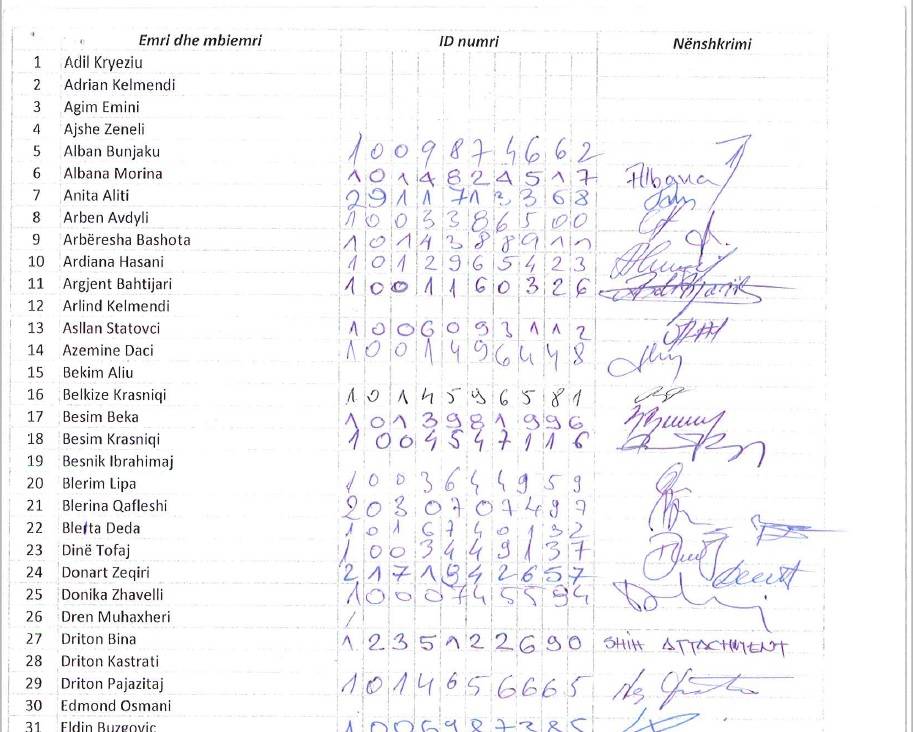 Emri dhe mbiemri ID numri Nënshkrimi
1 Adil Kryeziu
2 Adrian Kelmendi
3 Agim Emini
4 Ajshe Zeneli
5 Alban Bunjaku 1009874662
6 Albana Morina 1014824517 Albana
7 Anita Aliti
8 Arben Avdyli 1003386500
9 Arbëresha Bashota
10 Ardiana Hasani 1012965423
11 Argjent Bahtijari 1001160326
12 Arlind Kelmendi
13 Asllan Statovci 1006093112
14 Azemine Daci 1001496448
15 Bekim Aliu
16 Belkize Krasniqi 1014596581
17 Besim Beka 1013981996
18 Besim Krasniqi 1004547116
19 Besnik Ibrahimaj
20 Blerim Lipa 1003644959
21 Blerina Qafleshi 2030707497
22 Blerta Deda 1016740132
23 Dinë Tofaj 1003449137
24 Donart Zeqiri 2171942657
25 Donika Zhavelli 1000745594
26 Dren Muhaxheri
27 Driton Bina 1235122690 SHIH ATTACHMENT
28 Driton Kastrati
29 Driton Pajazitaj 1014656665
30 Edmond Osmani
31 Eldin Buzgovic 1006987385